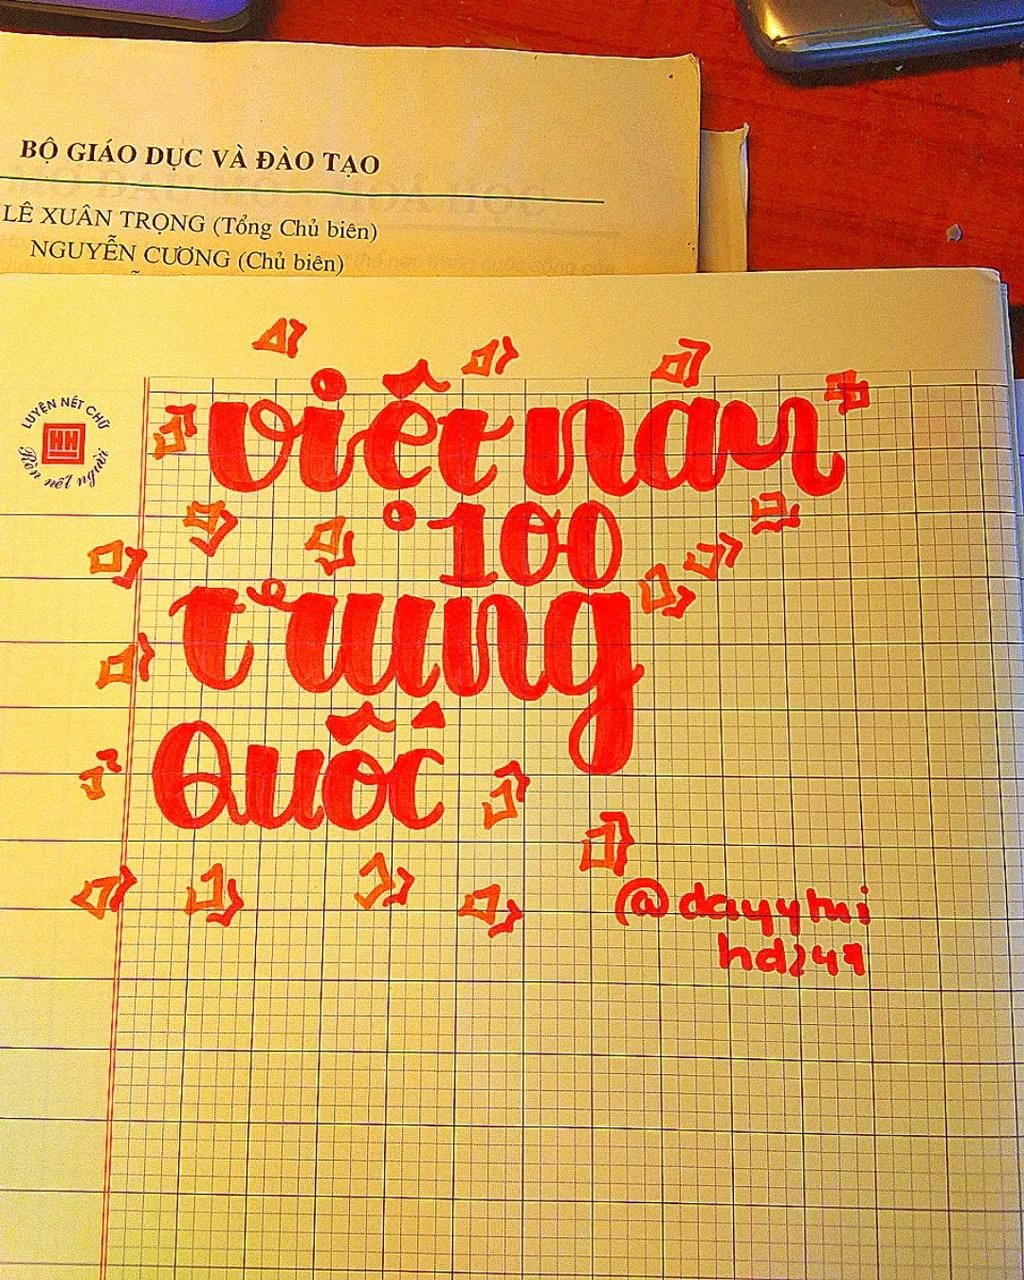 BỘ GIÁO DỤC VÀ ĐÀO TẠO
LÊ XUÂN TRỌNG (Tổng Chủ biên)
NGUYỄN CƯƠNG (Chủ biên)
LUYỆN NÉT CHỮ
HH
Rèn nét người
việt nam
100
trung
Quốc
@dayytui
hd249